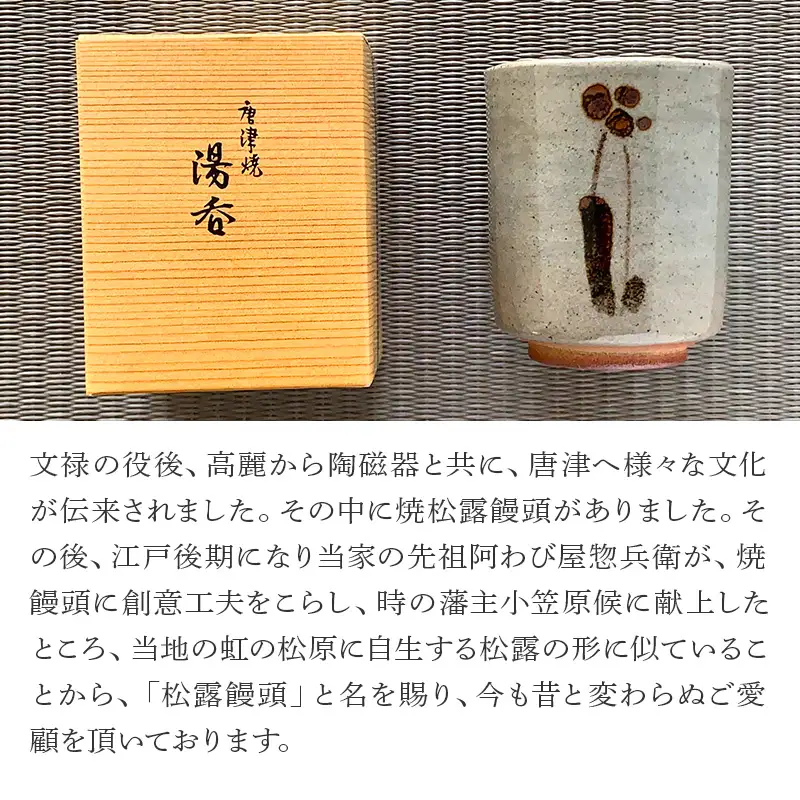 唐津焼
湯呑
文禄の役後、高麗から陶磁器と共に、唐津へ様々な文化
が伝来されました。その中に焼松露饅頭がありました。そ
の後、江戸後期になり当家の先祖阿わび屋惣兵衛が、焼
饅頭に創意工夫をこらし、時の藩主小笠原候に献上した
ところ、当地の虹の松原に自生する松露の形に似ているこ
とから、「松露饅頭」と名を賜り、今も昔と変わらぬご愛
顧を頂いております。